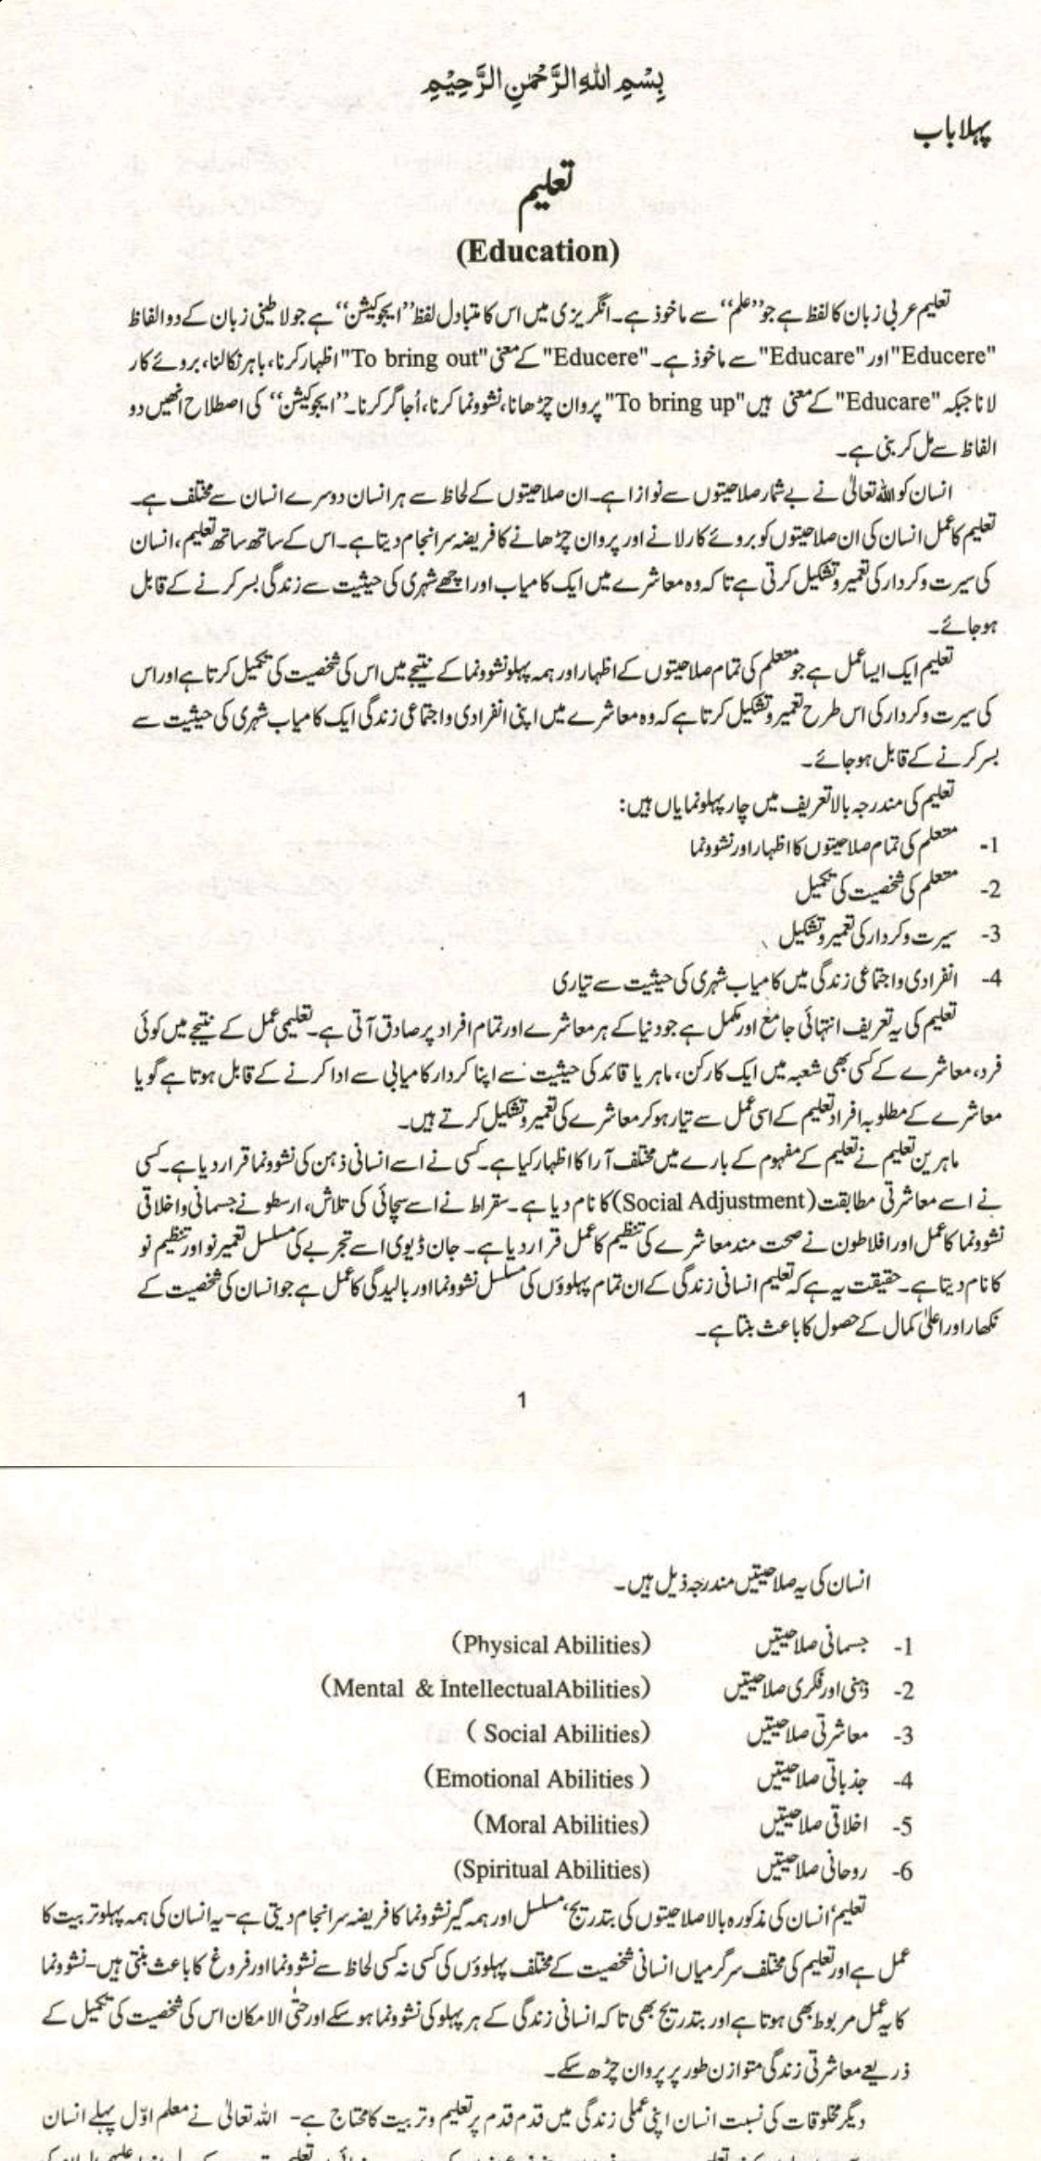 بِسْمِ اللهِ الرَّحْمٰنِ الرَّحِيْمِ
پہلا باب
تعلیم
(Education)
تعلیم عربی زبان کا لفظ ہے جو ’’علم‘‘ سے ماخوذ ہے۔ انگریزی میں اس کا متبادل لفظ ’’ایجوکیشن‘‘ ہے جو لاطینی زبان کے دو الفاظ
"Educere" اور "Educare" سے ماخوذ ہے۔ "Educere" کے معنی "To bring out" اظہار کرنا، باہر نکالنا، بروئے کار
لانا جبکہ "Educare" کے معنی ہیں "To bring up" پروان چڑھانا، نشوونما کرنا، اُجاگر کرنا۔ ’’ایجوکیشن‘‘ کی اصطلاح انھیں دو
الفاظ سے مل کر بنی ہے۔
انسان کو اللہ تعالیٰ نے بے شمار صلاحیتوں سے نوازا ہے۔ ان صلاحیتوں کے لحاظ سے ہر انسان دوسرے انسان سے مختلف ہے۔
تعلیم کا عمل انسان کی ان صلاحیتوں کو بروئے کار لانے اور پروان چڑھانے کا فریضہ سرانجام دیتا ہے۔ اس کے ساتھ ساتھ تعلیم، انسان
کی سیرت و کردار کی تعمیر و تشکیل کرتی ہے تاکہ وہ معاشرے میں ایک کامیاب اور اچھے شہری کی حیثیت سے زندگی بسر کرنے کے قابل
ہو جائے۔
تعلیم ایک ایسا عمل ہے جو متعلم کی تمام صلاحیتوں کے اظہار اور ہمہ پہلو نشوونما کے نتیجے میں اس کی شخصیت کی تکمیل کرتا ہے اور اس
کی سیرت و کردار کی اس طرح تعمیر و تشکیل کرتا ہے کہ وہ معاشرے میں اپنی انفرادی و اجتماعی زندگی ایک کامیاب شہری کی حیثیت سے
بسر کرنے کے قابل ہو جائے۔
تعلیم کی مندرجہ بالا تعریف میں چار پہلو نمایاں ہیں:
1- متعلم کی تمام صلاحیتوں کا اظہار اور نشوونما
2- متعلم کی شخصیت کی تکمیل
3- سیرت و کردار کی تعمیر و تشکیل
4- انفرادی و اجتماعی زندگی میں کامیاب شہری کی حیثیت سے تیاری
تعلیم کی یہ تعریف انتہائی جامع اور مکمل ہے جو دنیا کے ہر معاشرے اور تمام افراد پر صادق آتی ہے۔ تعلیمی عمل کے نتیجے میں کوئی
فرد، معاشرے کے کسی بھی شعبہ میں ایک کارکن، ماہر یا قائد کی حیثیت سے اپنا کردار کامیابی سے ادا کرنے کے قابل ہوتا ہے گویا
معاشرے کے مطلوبہ افراد تعلیم کے اسی عمل سے تیار ہو کر معاشرے کی تعمیر و تشکیل کرتے ہیں۔
ماہرین تعلیم نے تعلیم کے مفہوم کے بارے میں مختلف آرا کا اظہار کیا ہے۔ کسی نے اسے انسانی ذہن کی نشوونما قرار دیا ہے۔ کسی
نے اسے معاشرتی مطابقت (Social Adjustment) کا نام دیا ہے۔ سقراط نے اسے سچائی کی تلاش، ارسطو نے جسمانی و اخلاقی
نشوونما کا عمل اور افلاطون نے صحت مند معاشرے کی تنظیم کا عمل قرار دیا ہے۔ جان ڈیوی اسے تجربے کی مسلسل تعمیر نو اور تنظیم نو
کا نام دیتا ہے۔ حقیقت یہ ہے کہ تعلیم انسانی زندگی کے ان تمام پہلوؤں کی مسلسل نشوونما اور بالیدگی کا عمل ہے جو انسان کی شخصیت کے
نکھار اور اعلیٰ کمال کے حصول کا باعث بنتا ہے۔
1
انسان کی یہ صلاحیتیں مندرجہ ذیل ہیں۔
1- جسمانی صلاحیتیں (Physical Abilities)
2- ذہنی اور فکری صلاحیتیں (Mental & IntellectualAbilities)
3- معاشرتی صلاحیتیں ( Social Abilities)
4- جذباتی صلاحیتیں (Emotional Abilities )
5- اخلاقی صلاحیتیں (Moral Abilities)
6- روحانی صلاحیتیں (Spiritual Abilities)
تعلیم‘ انسان کی مذکورہ بالا صلاحیتوں کی بتدریج‘ مسلسل اور ہمہ گیر نشوونما کا فریضہ سرانجام دیتی ہے- یہ انسان کی ہمہ پہلو تربیت کا
عمل ہے اور تعلیم کی مختلف سرگرمیاں انسانی شخصیت کے مختلف پہلوؤں کی کسی نہ کسی لحاظ سے نشوونما اور فروغ کا باعث بنتی ہیں- نشوونما
کا یہ عمل مربوط بھی ہوتا ہے اور بتدریج بھی تاکہ انسانی زندگی کے ہر پہلو کی نشوونما ہو سکے اور حتیٰ الامکان اس کی شخصیت کی تکمیل کے
ذریعے معاشرتی زندگی متوازن طور پر پروان چڑھ سکے۔
دیگر مخلوقات کی نسبت انسان اپنی عملی زندگی میں قدم قدم پر تعلیم و تربیت کا محتاج ہے- اللہ تعالیٰ نے معلم اوّل پہلے انسان